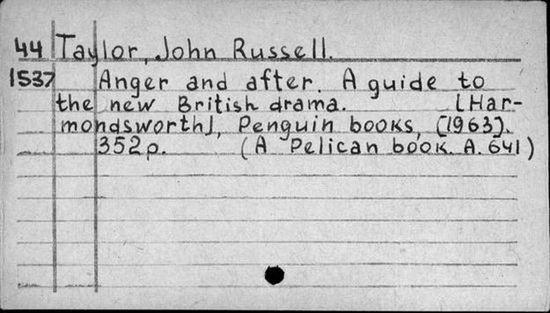 44 Taylor, John Russell.
1537 Anger and after. A guide to
the new British drama. [Har-
mondsworth], Penguin books, [1963].
352p. (A Pelican book. A. 641)